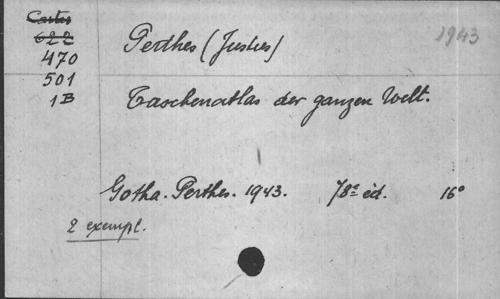 Cartes
622
470
501
1B
Perthes (Justus)
1943
Taschenatlas der ganzen Welt.
Gotha. Perthes. 1943. 78e éd. 16°
2 exempl.